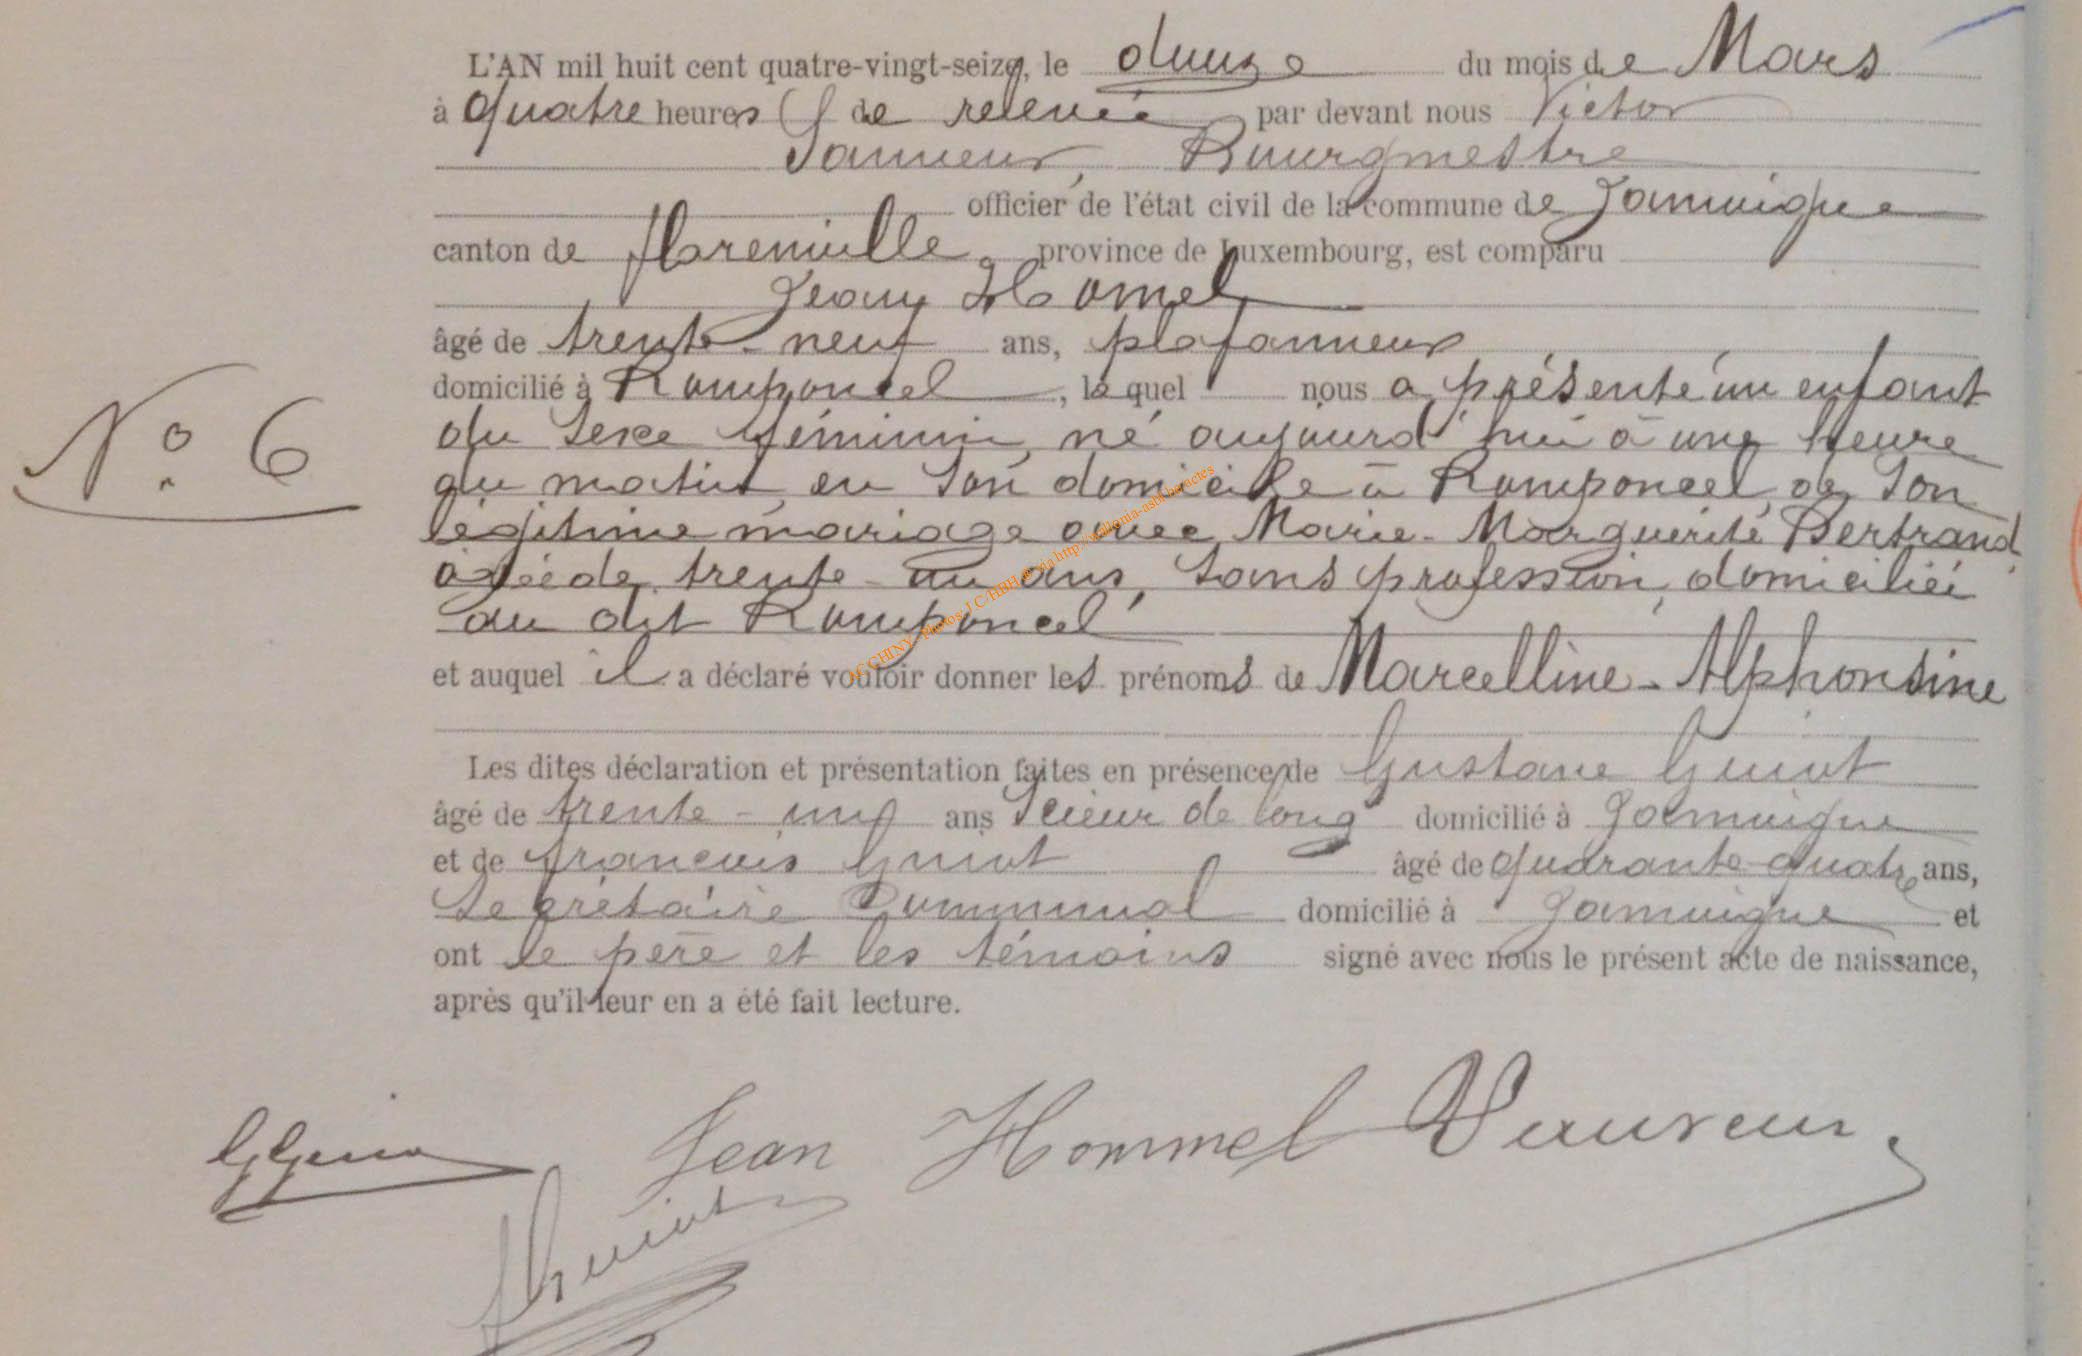 L'AN mil huit cent quatre-vingt-seize, le douze du mois de Mars
à quatre heures de relevée par devant nous Victor
Bourgmestre
officier de l'état civil de la commune de Jamoigne
canton de florenville, province de Luxembourg, est comparu
Jean Homel
âgé de trente-neuf ans, plafonneur
domicilié à Romponcel, le quel nous a présenté un enfant
du sexe féminin, né aujourd'hui à une heure
du matin, en son domicile à Romponcel, de son
légitime mariage avec Marie-Marguerite Bertrand,
âgée de trente-un ans, sans profession, domiciliée
au dit Romponcel
et auquel il a déclaré vouloir donner les prénoms de Marcelline-Alphonsine
Les dites déclaration et présentation faites en présence de Gustave Guiot
âgé de trente-un ans scieur de long domicilié à Jamoigne
et de françois Guiot âgé de quarante-quatre ans,
Secrétaire Communal domicilié à Jamoigne et
ont le père et les témoins signé avec nous le présent acte de naissance,
après qu'il leur en a été fait lecture.
N° 6
Jean Hommel